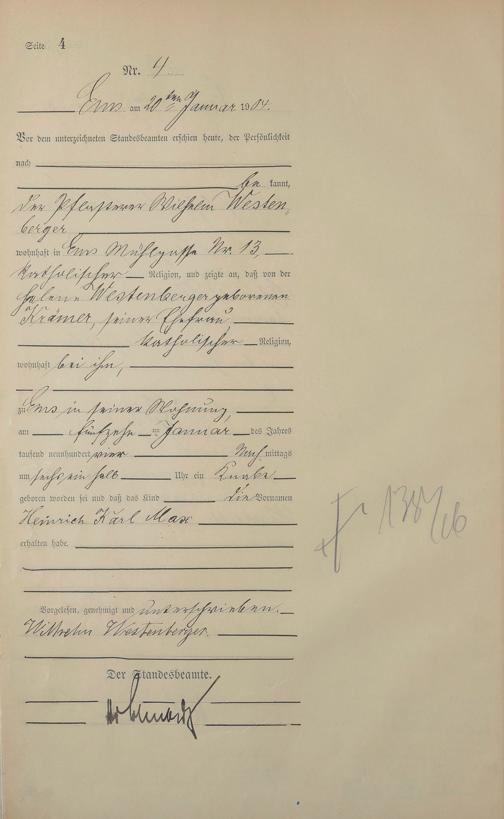 Seite 4
Nr. 4
Ems am 20ten Januar 1904.
Vor dem unterzeichneten Standesbeamten erschien heute, der Persönlichkeit
nach
be kannt,
der Pflasterer Wilhelm Westen-
berger
wohnhaft in Ems Mühlgasse Nr. 13,
katholischer Religion, und zeigte an, daß von der
Helene Westenberger geborenen
Krämer, seiner Ehefrau,
katholischer Religion,
wohnhaft bei ihm,
zu Ems in seiner Wohnung,
am fünfzehn ten Januar des Jahres
tausend neunhundert vier Nach mittags
um sechs ein halb Uhr ein Knabe
geboren worden sei und daß das Kind die Vornamen
Heinrich Karl Max
erhalten habe.
Vorgelesen, genehmigt und unterschrieben.
Wilhelm Westenberger
Der Standesbeamte.